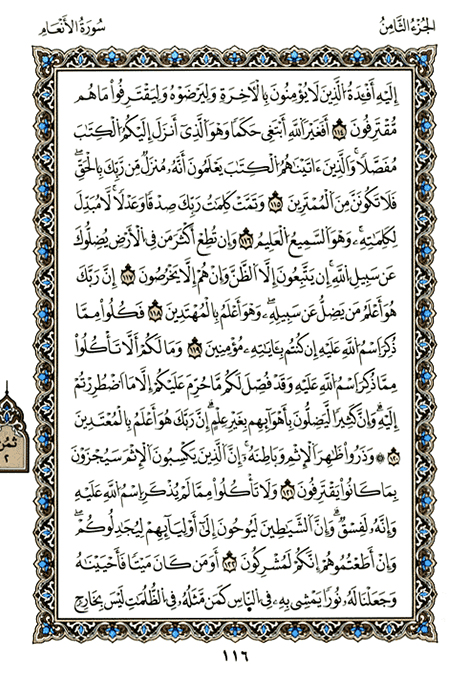 الجُزْءُ الثَّامِنُ
سُورَةُ الأَنْعَام
إِلَيْهِ أَفْـِٔدَةُ الَّذِينَ لَا يُؤْمِنُونَ بِالْآخِرَةِ وَلِيَرْضَوْهُ وَلِيَقْتَرِفُوا مَا هُم
مُّقْتَرِفُونَ ١١٤ أَفَغَيْرَ اللَّهِ أَبْتَغِى حَكَمًا وَهُوَ الَّذِى أَنزَلَ إِلَيْكُمُ الْكِتَٰبَ
مُفَصَّلًا وَالَّذِينَ ءَاتَيْنَٰهُمُ الْكِتَٰبَ يَعْلَمُونَ أَنَّهُ مُنزَلٌ مِّن رَّبِّكَ بِالْحَقِّ
فَلَا تَكُونَنَّ مِنَ الْمُمْتَرِينَ ١١٥ وَتَمَّتْ كَلِمَٰتُ رَبِّكَ صِدْقًا وَعَدْلًا لَّا مُبَدِّلَ
لِكَلِمَٰتِهِ وَهُوَ السَّمِيعُ الْعَلِيمُ ١١٦ وَإِن تُطِعْ أَكْثَرَ مَن فِى الْأَرْضِ يُضِلُّوكَ
عَن سَبِيلِ اللَّهِ إِن يَتَّبِعُونَ إِلَّا الظَّنَّ وَإِنْ هُمْ إِلَّا يَخْرُصُونَ ١١٧ إِنَّ رَبَّكَ
هُوَ أَعْلَمُ مَن يَضِلُّ عَن سَبِيلِهِ وَهُوَ أَعْلَمُ بِالْمُهْتَدِينَ ١١٨ فَكُلُوا مِمَّا
ذُكِرَ اسْمُ اللَّهِ عَلَيْهِ إِن كُنتُم بِـَٔايَٰتِهِ مُؤْمِنِينَ ١١٩ وَمَا لَكُمْ أَلَّا تَأْكُلُوا
مِمَّا ذُكِرَ اسْمُ اللَّهِ عَلَيْهِ وَقَدْ فُصِّلَ لَكُم مَّا حُرِّمَ عَلَيْكُمْ إِلَّا مَا اضْطُرِرْتُمْ
إِلَيْهِ وَإِنَّ كَثِيرًا لَّيَضِلُّونَ بِأَهْوَآئِهِم بِغَيْرِ عِلْمٍ إِنَّ رَبَّكَ هُوَ أَعْلَمُ بِالْمُعْتَدِينَ
١٢٠ وَذَرُوا ظَٰهِرَ الْإِثْمِ وَبَاطِنَهُ إِنَّ الَّذِينَ يَكْسِبُونَ الْإِثْمَ سَيُجْزَوْنَ
بِمَا كَانُوا يَقْتَرِفُونَ ١٢١ وَلَا تَأْكُلُوا مِمَّا لَمْ يُذْكَرِ اسْمُ اللَّهِ عَلَيْهِ
وَإِنَّهُ لَفِسْقٌ وَإِنَّ الشَّيَاطِينَ لَيُوحُونَ إِلَىٰ أَوْلِيَآئِهِمْ لِيُجَٰدِلُوكُمْ
وَإِنْ أَطَعْتُمُوهُمْ إِنَّكُمْ لَمُشْرِكُونَ ١٢٢ أَوَمَن كَانَ مَيْتًا فَأَحْيَيْنَٰهُ
وَجَعَلْنَا لَهُ نُورًا يَمْشِى بِهِ فِى النَّاسِ كَمَن مَّثَلُهُ فِى الظُّلُمَٰتِ لَيْسَ بِخَارِجٍ
ثمن
٢
١١٦